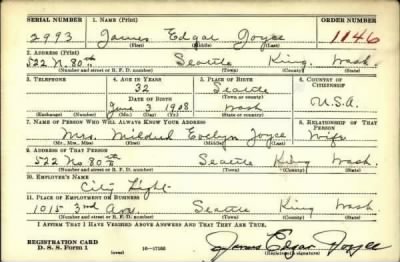 SERIAL NUMBER 1. NAME (Print) ORDER NUMBER
2993 James Edgar Joyce 1146
(First) (Middle) (Last)
2. ADDRESS (Print)
522 N. 80th Seattle King Wash.
(Number and street or R. F. D. number) (Town) (County) (State)
3. TELEPHONE 4. AGE IN YEARS 5. PLACE OF BIRTH 6. COUNTRY OF CITIZENSHIP
32 Seattle
(Town or county)
DATE OF BIRTH
June 3 1908 Wash U.S.A.
(Exchange) (Number) (Mo.) (Day) (Yr.) (State or country)
7. NAME OF PERSON WHO WILL ALWAYS KNOW YOUR ADDRESS 8. RELATIONSHIP OF THAT PERSON
Mrs. Mildred Evelyn Joyce Wife
(Mr., Mrs., Miss) (First) (Middle) (Last)
9. ADDRESS OF THAT PERSON
522 No. 80th Seattle King Wash.
(Number and street or R. F. D. number) (Town) (County) (State)
10. EMPLOYER'S NAME
City Light
11. PLACE OF EMPLOYMENT OR BUSINESS
1015 3rd Ave. Seattle King Wash
(Number and street or R. F. D. number) (Town) (County) (State)
I AFFIRM THAT I HAVE VERIFIED ABOVE ANSWERS AND THAT THEY ARE TRUE.
REGISTRATION CARD
D. S. S. Form 1 (over) 16—17105 James Edgar Joyce
(Registrant's signature)